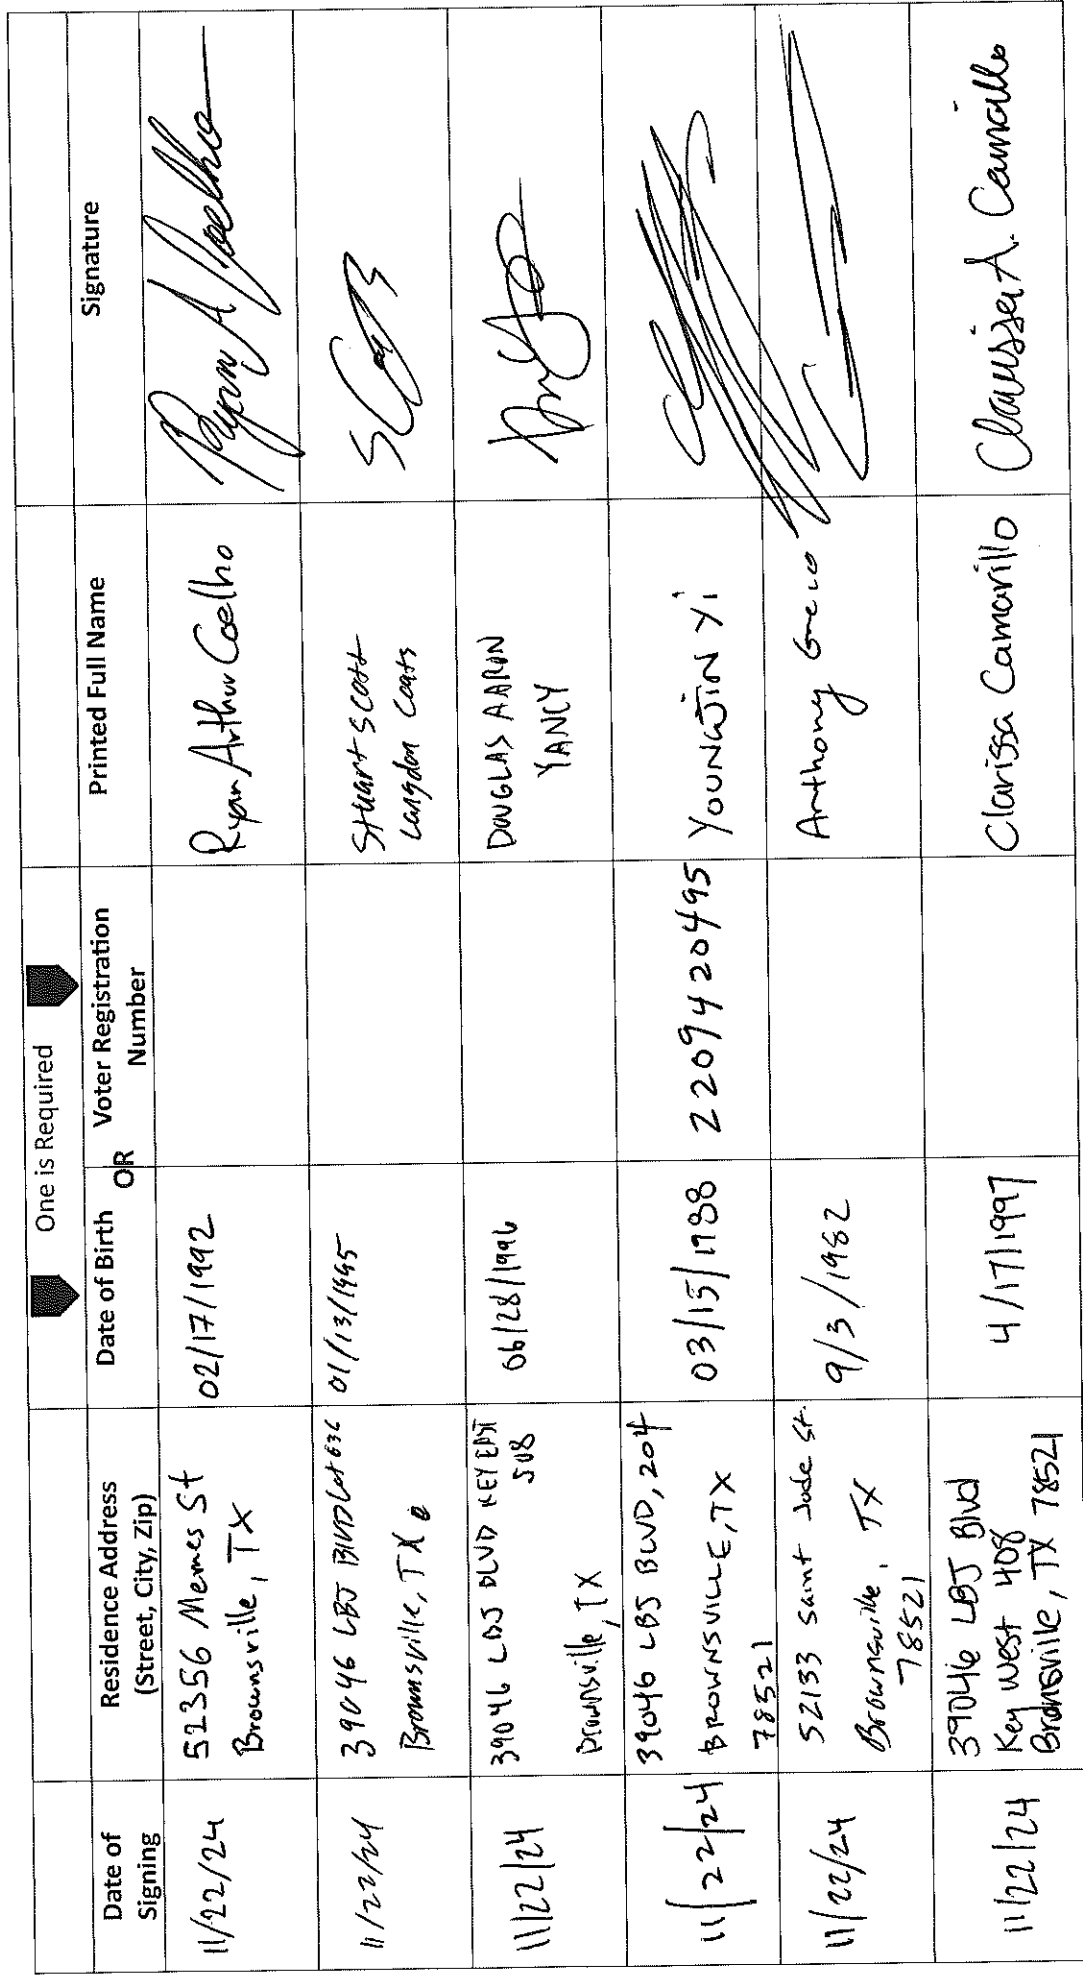 One is Required
Date of
Signing
Residence Address
(Street, City, Zip)
Date of Birth
OR
Voter Registration
Number
Printed Full Name
Signature
11/22/24
52356 Memes St
Brownsville, TX
02/17/1992
Ryan Arthur Coelho
Ryan A Coelho
11/22/24
39046 LBJ BLVD Lot 636
Brownsville, TX
01/13/1995
Stuart Scott
Langdon Coats
11/22/24
39046 LBJ BLVD KEY EAST
508
Brownsville, TX
06/28/1996
DOUGLAS AARON
YANCY
11/22/24
39046 LBJ BLVD, 204
BROWNSVILLE, TX
78521
03/15/1988
2209420495
YOUNGJIN Yi
11/22/24
52133 Saint Jude St.
Brownsville, TX
78521
9/3/1982
Anthony
11/22/24
39046 LBJ Blvd
Key West 408
Bronsville, TX 78521
4/17/1997
Clarissa Camarillo
Clarissa A. Camarillo